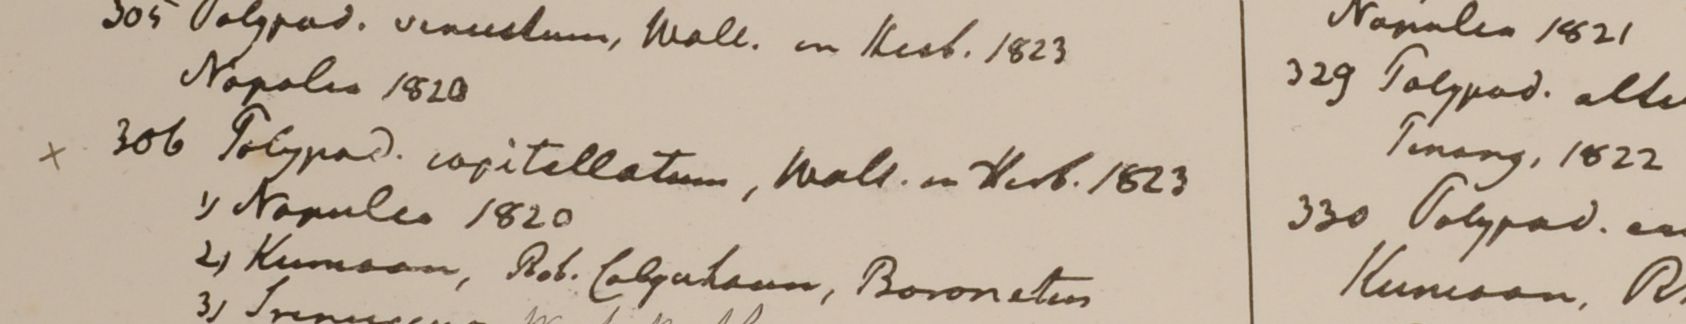 305 Polypod. venustum, Wall. in Herb. 1823
Napalia 1820
306 Polypod. capitellatum, Wall. in Herb. 1823
1) Napalia 1820
2) Kumaon, Rob. Colquhoun, Baronetus
3)
Napalia 1821
329 Polypod.
Penang, 1822
330 Polypod.
Kumaon, R